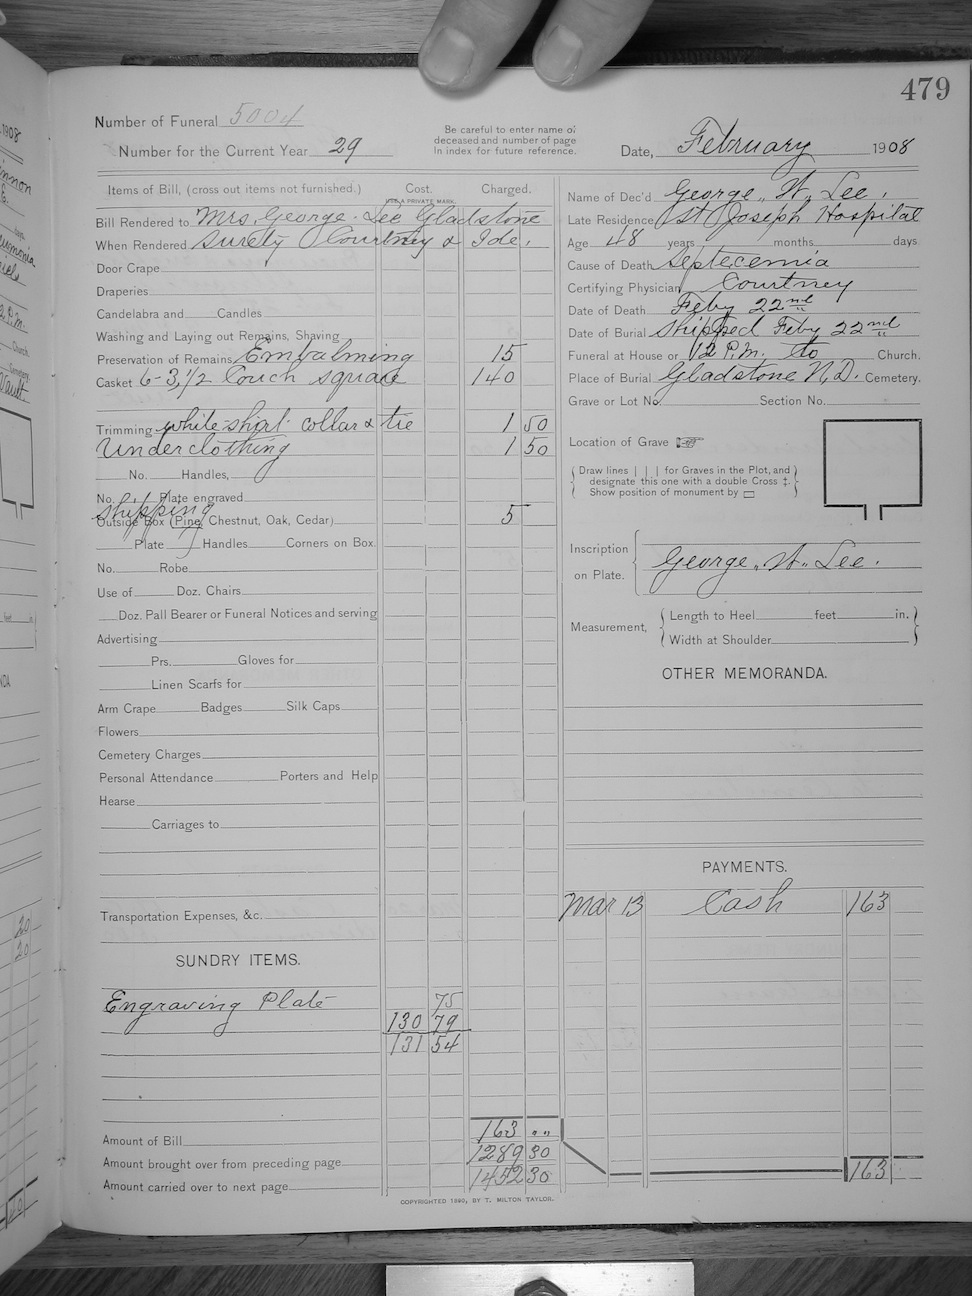 479
Number of Funeral 5004
Number for the Current Year 29
Be careful to enter name of
deceased and number of page
in index for future reference.
Date, February 1908
Items of Bill, (cross out items not furnished.) Cost. Charged.
USE A PRIVATE MARK.
Bill Rendered to Mrs. George Lee Gladstone
When Rendered Surety Courtney & Ide.
Door Crape
Draperies
Candelabra and Candles
Washing and Laying out Remains, Shaving
Preservation of Remains Embalming 15
Casket 6-3 1/2 Couch square 140
Trimming white shirt collar & tie 1 50
Underclothing 1 50
No. Handles,
No. Plate engraved
Shipping
Outside Box (Pine, Chestnut, Oak, Cedar) 5
Plate Handles Corners on Box.
No. Robe
Use of Doz. Chairs
Doz. Pall Bearer or Funeral Notices and serving
Advertising
Prs. Gloves for
Linen Scarfs for
Arm Crape Badges Silk Caps
Flowers
Cemetery Charges
Personal Attendance Porters and Help
Hearse
Carriages to
Transportation Expenses, &c.
SUNDRY ITEMS.
Engraving Plate 75
130 79
131 54
Amount of Bill 163 " "
Amount brought over from preceding page 1289 30
Amount carried over to next page 1452 30
COPYRIGHTED 1890, BY T. MILTON TAYLOR.
Name of Dec'd George "W" Lee.
Late Residence St Joseph Hospital
Age 48 years months days
Cause of Death Septecemia
Certifying Physician Courtney
Date of Death Feby 22nd
Date of Burial Shipped Feby 22nd
Funeral at House or 12 P.M. to Church.
Place of Burial Gladstone N.D. Cemetery.
Grave or Lot No. Section No.
Location of Grave
Draw lines | | | for Graves in the Plot, and
designate this one with a double Cross ‡.
Show position of monument by ▭
Inscription
on Plate.
George "W" Lee.
Measurement,
Length to Heel feet in.
Width at Shoulder
OTHER MEMORANDA.
PAYMENTS.
Mar 13 Cash 163
163
1908
20
20